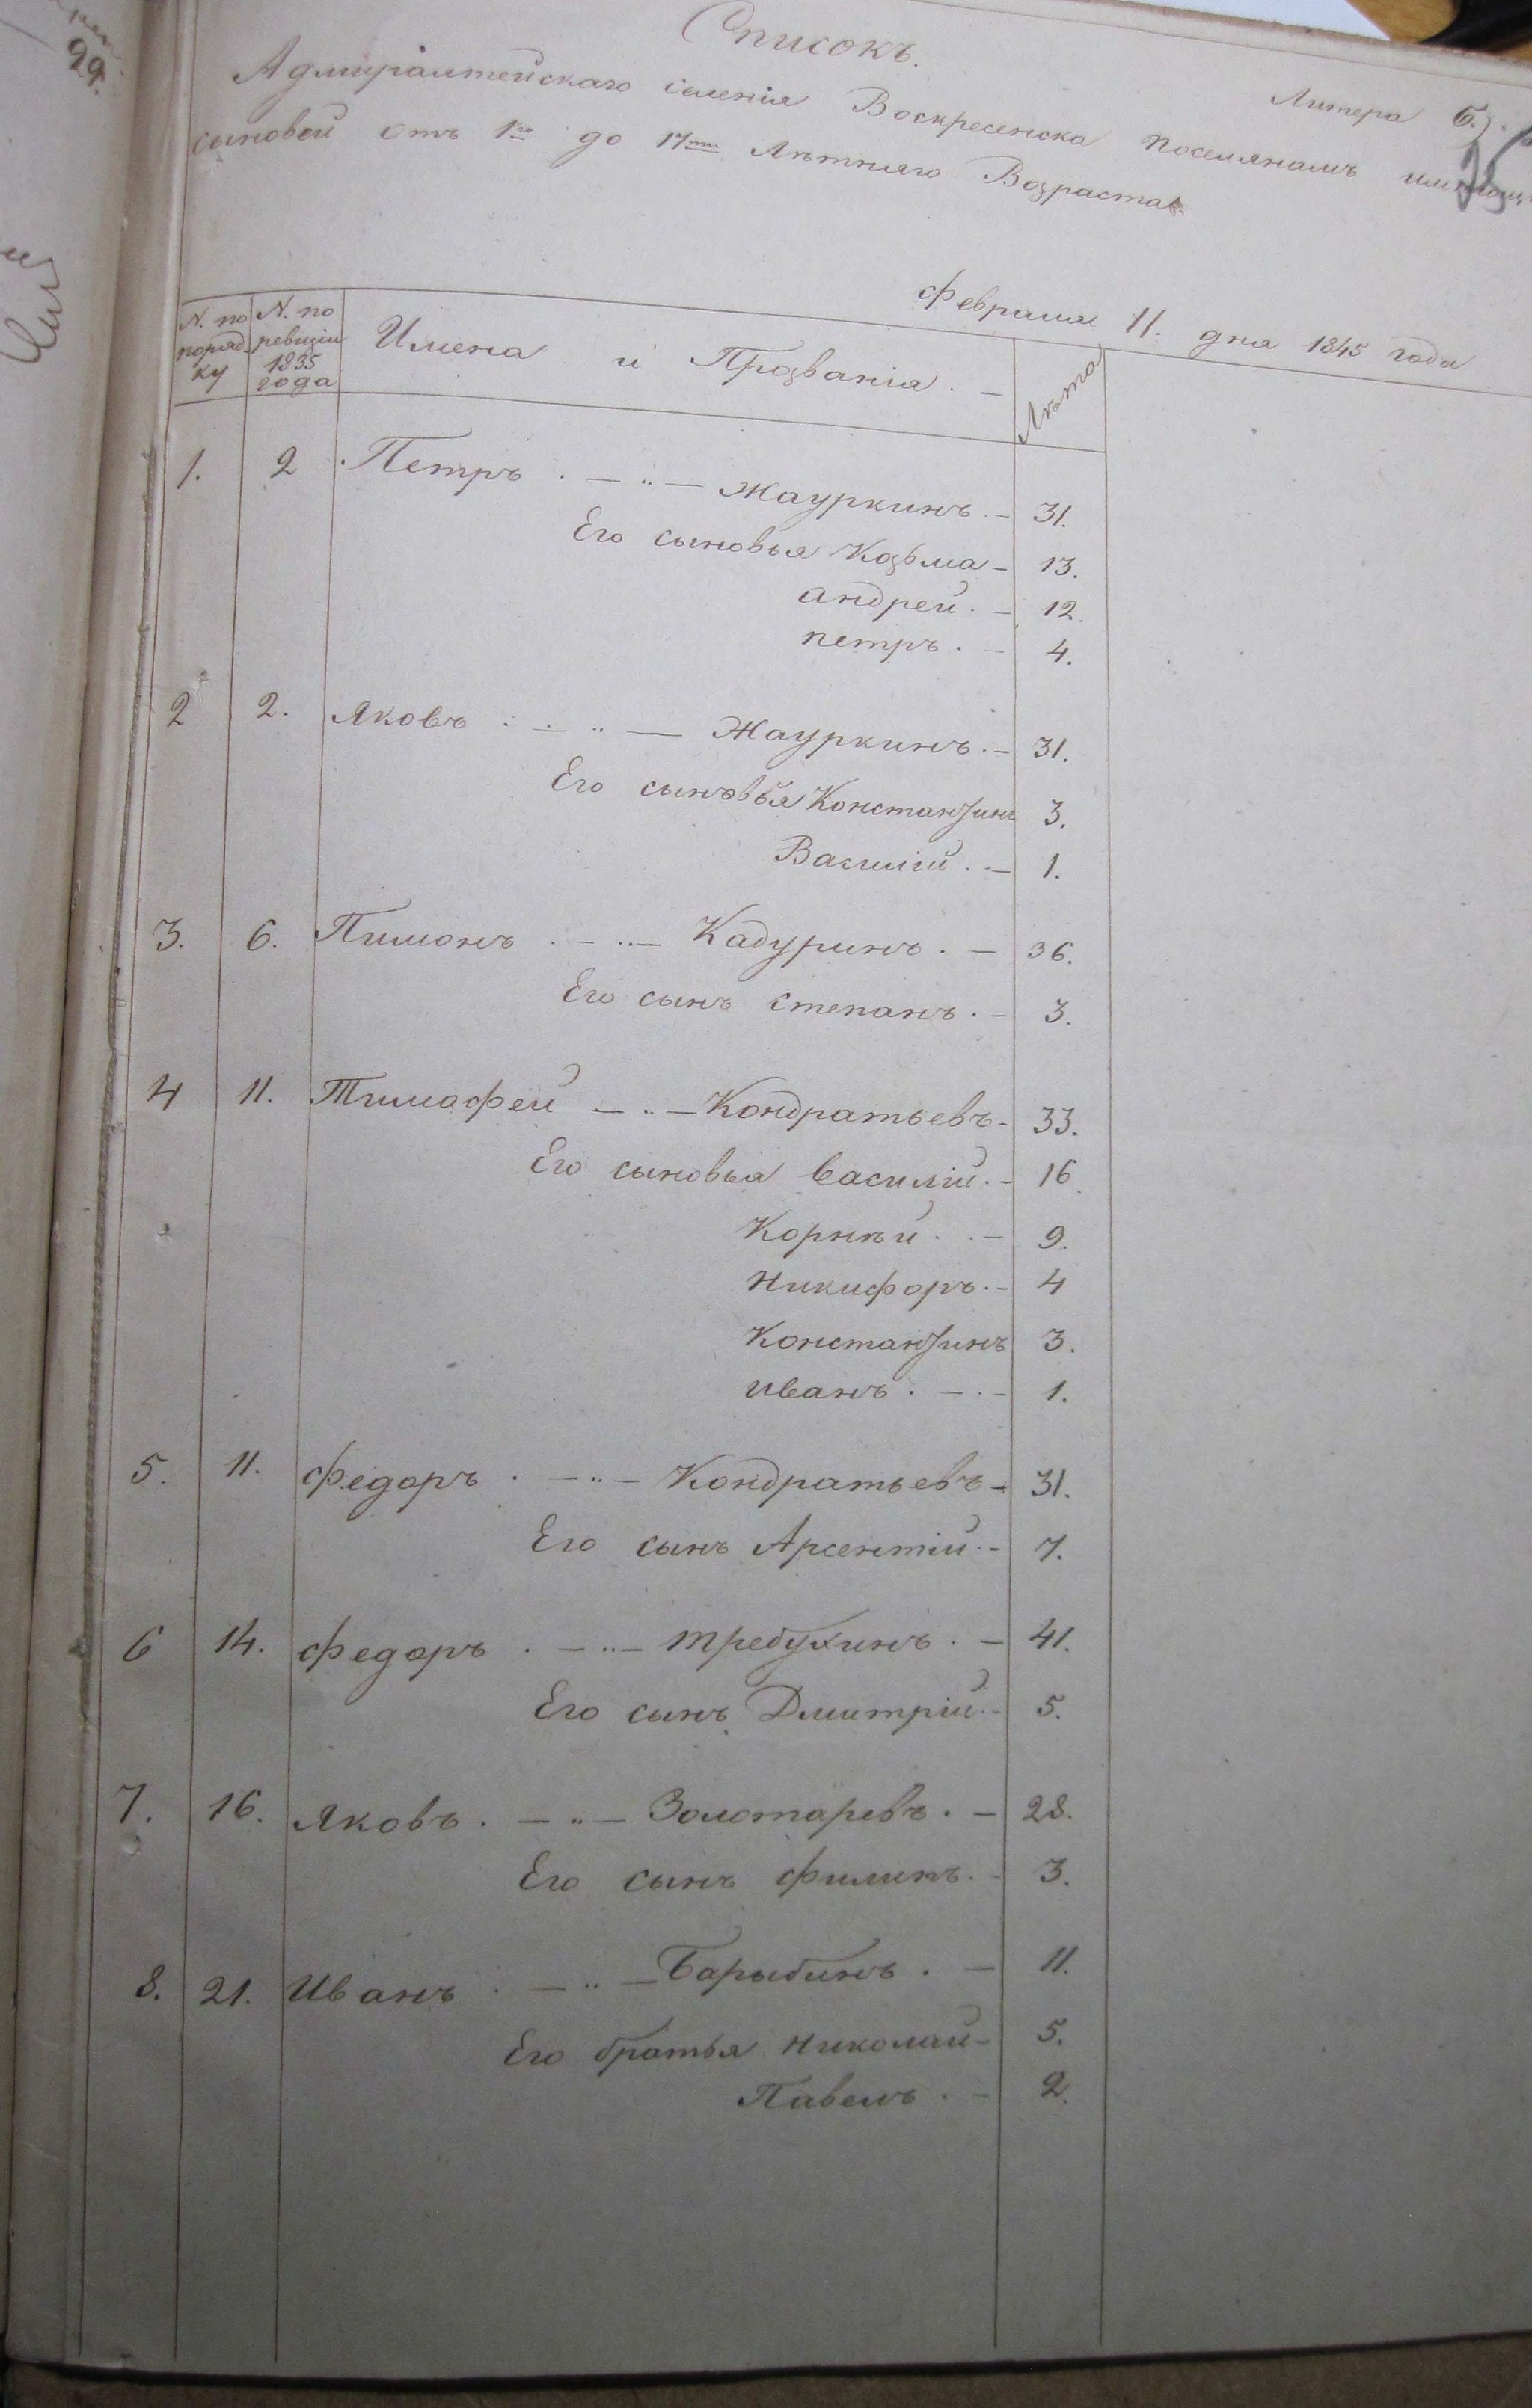 29.
Списокъ.
Литера Б.).
Адмиралтейскаго селенія Воскресенска поселянамъ имѣющ
сыновей отъ 1го до 17ти Лѣтняго Возраста.
Февраля 11. дня 1845 года
N. по порядку N. по ревизіи 1835 года Имена и Прозванія. — Лѣта
1. 2 Петръ . — „ — Жауркинъ. — 31.
Его сыновья Козьма — 13.
андрей. — 12.
петръ. — 4.
2 2. Яковъ . — „ — Жауркинъ. — 31.
Его сыновья Константинъ 3.
Василій. — 1.
3. 6. Пимонъ . — „ — Кадуринъ. — 36.
Его сынъ степанъ. — 3.
4 11. Тимофей — „ — Кондратьевъ — 33.
Его сыновья василій. — 16.
Корнѣй. — 9.
Никифоръ. — 4
Константинъ 3.
иванъ. — 1.
5. 11. Федоръ . — „ — Кондратьевъ — 31.
Его сынъ Арсентій — 7.
6 14. Федоръ . — „ — Требухинъ. — 41.
Его сынъ Дмитрій — 5.
7. 16. Яковъ. — „ — Золотаревъ. — 28.
Его сынъ Филипъ. — 3.
8. 21. Иванъ . — „ — Барыбинъ. — 11.
Его братья Николай — 5.
Павелъ. — 2.